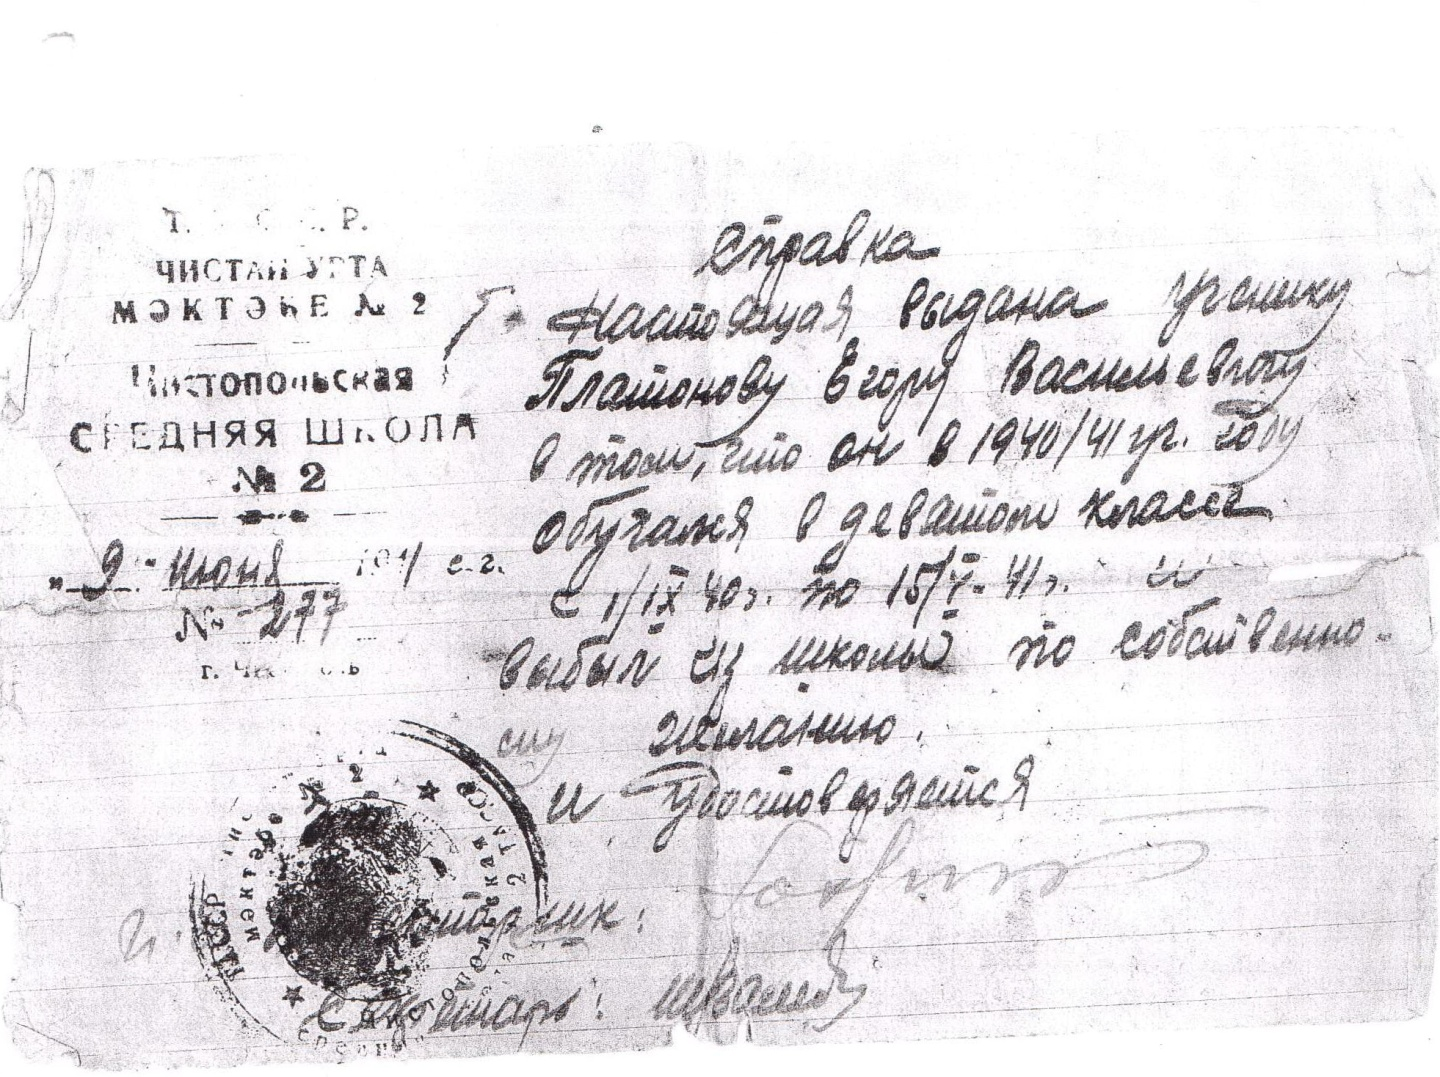 Т. С. С. Р.
ЧИСТАЙ УРТА
МӘКТӘБЕ № 2
Чистопольская
СРЕДНЯЯ ШКОЛА
№ 2
"9" июня 1941 с.г.
№ 277
г. Чистополь
Справка
Настоящая выдана ученику
Платонову Егору Васильевичу
в том, что он в 1940/41 уч. году
обучался в девятом классе
с 1/IX 40г. по 15/V-41г. и
выбыл из школы по собственно-
му желанию.
и удостоверяется
Секретарь:
ТССР
мәктәбе № 2